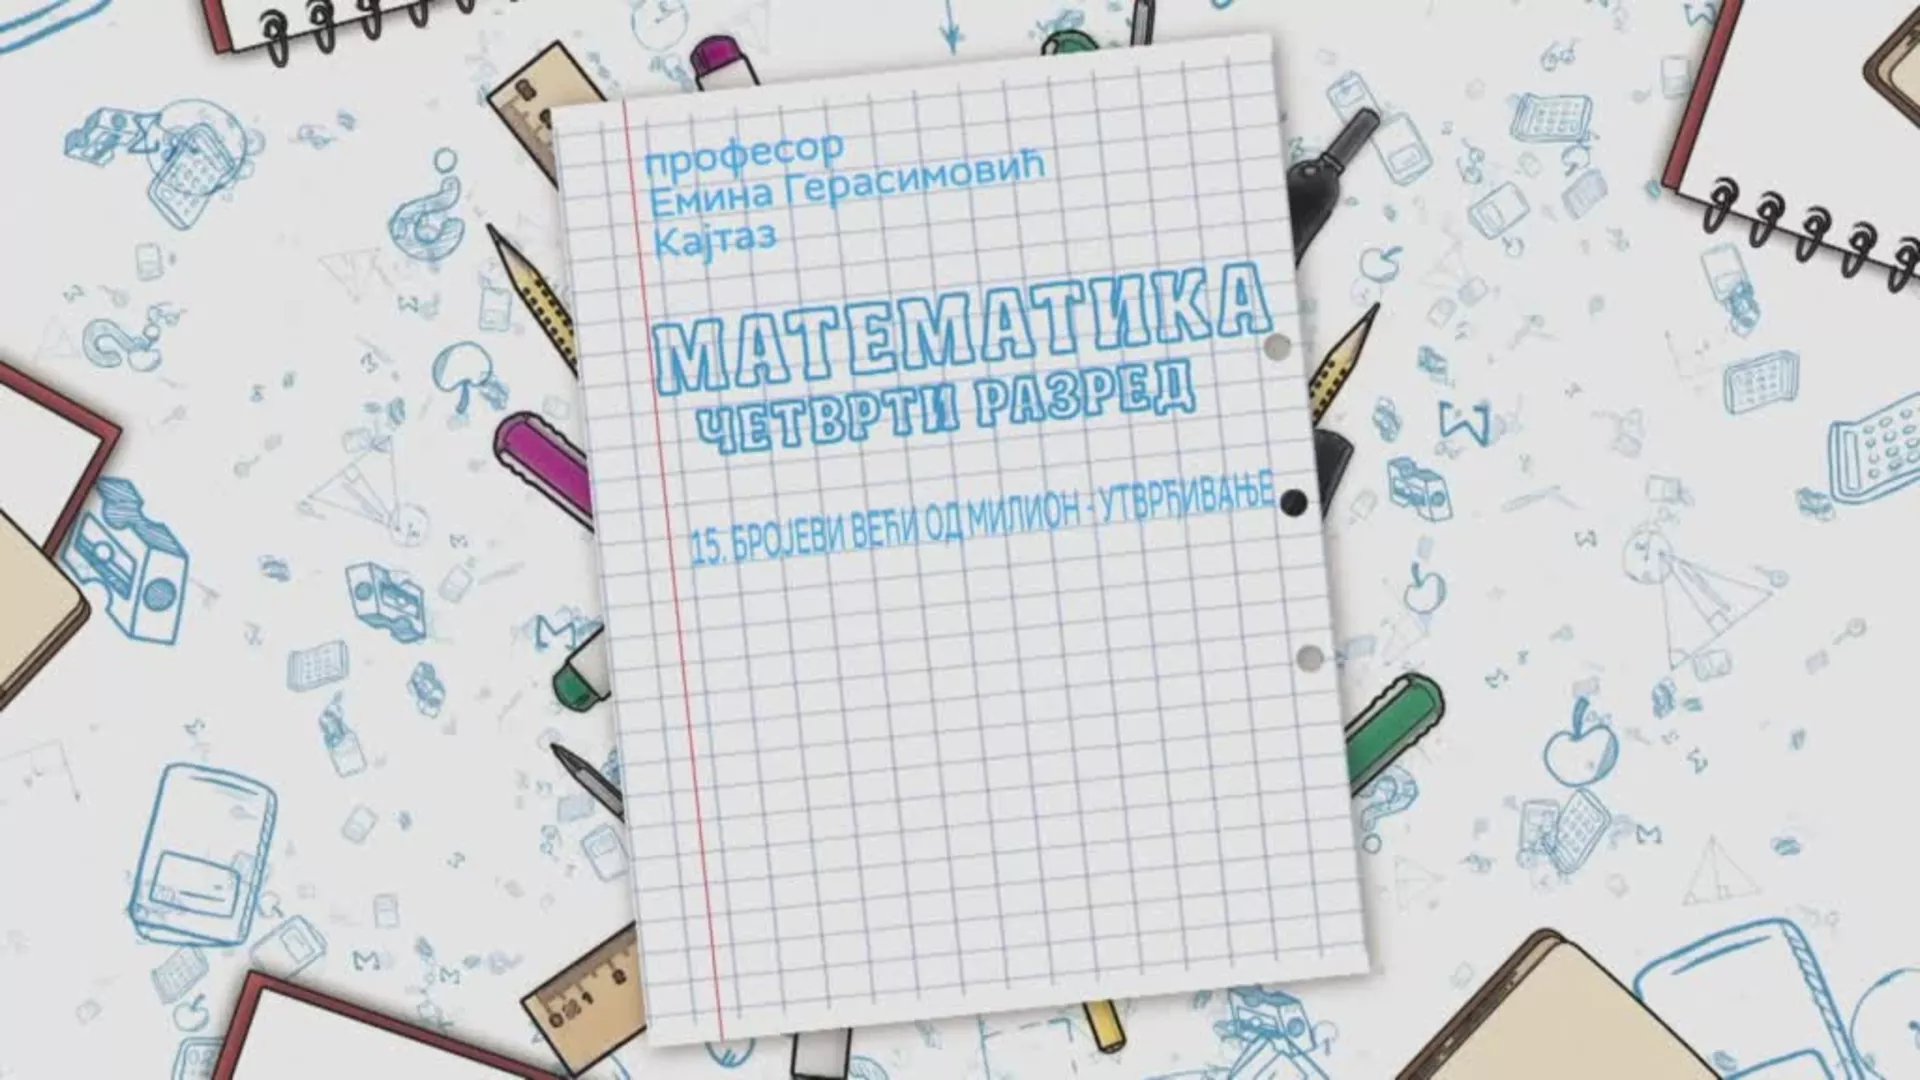 професор
Емина Герасимовић
Кајтаз
МАТЕМАТИКА
ЧЕТВРТИ РАЗРЕД
15. БРОЈЕВИ ВЕЋИ ОД МИЛИОН - УТВРЂИВАЊЕ